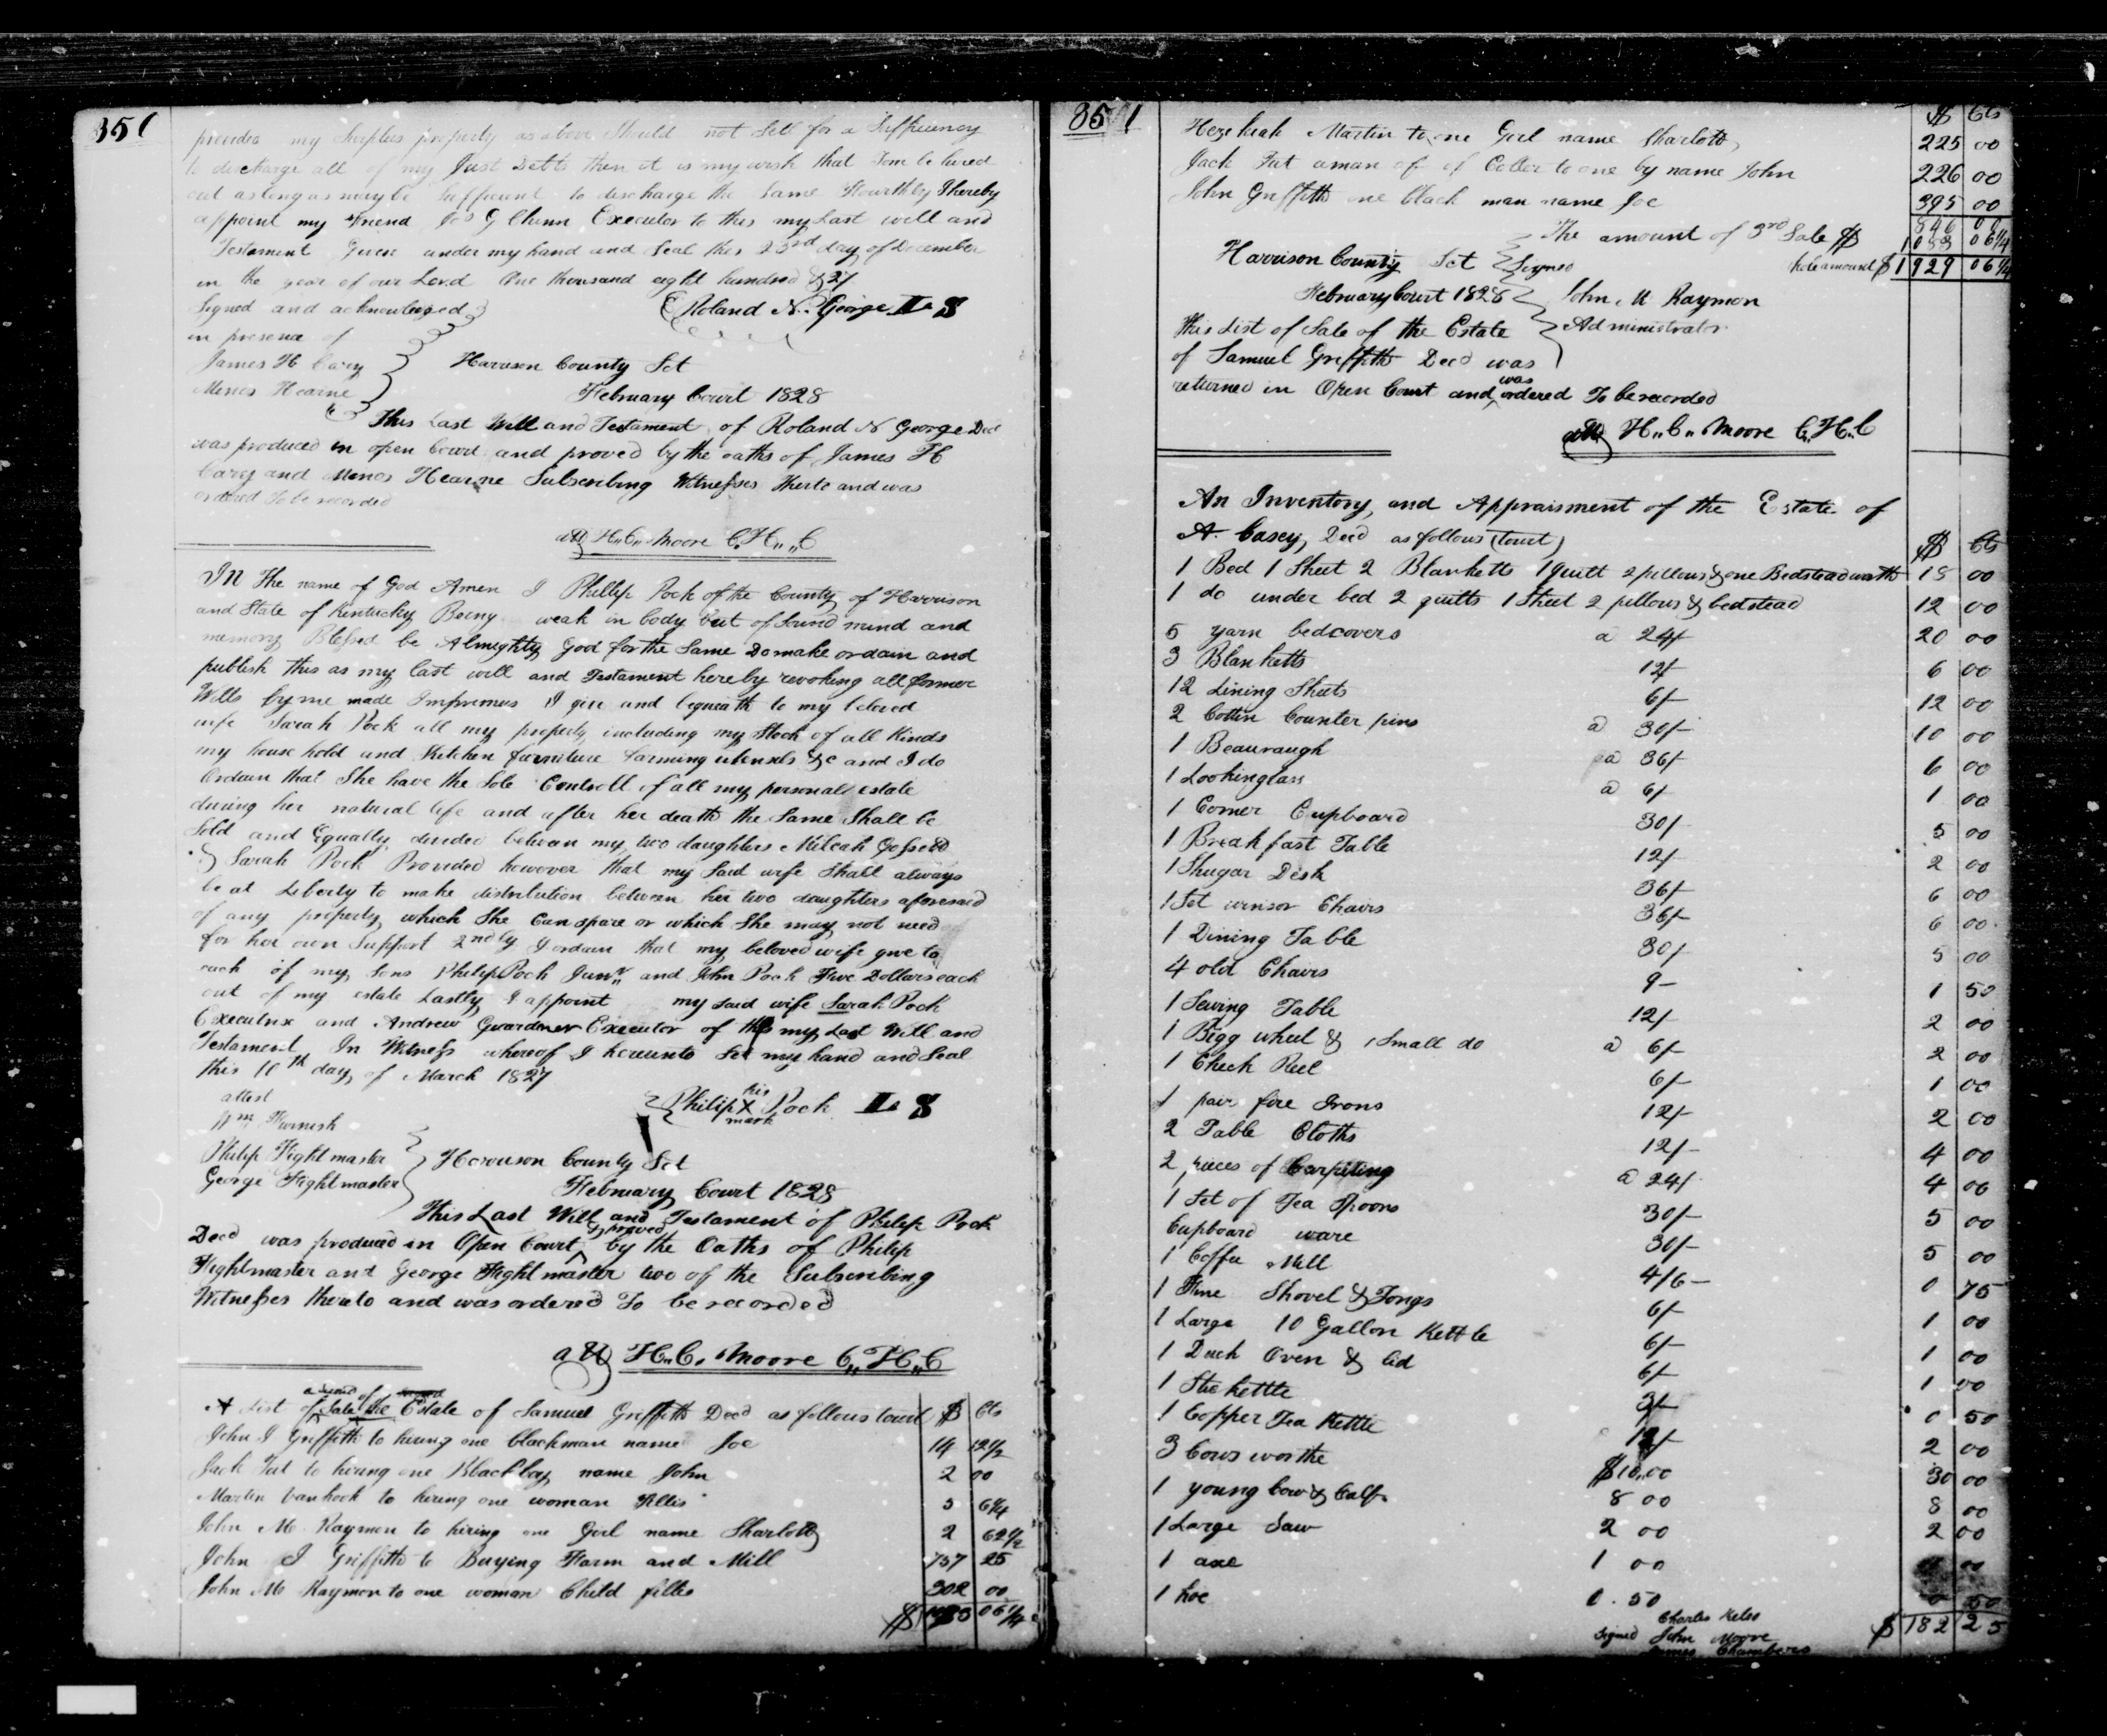 351
provided my Surplus property as above Should not Sell for a Sufficiency
to discharge all of my Just Debts then it is my wish that Tom be hired
out as long as may be Sufficient to discharge the Same Fourthly I hereby
appoint my Friend Jos G Chinn Executor to this my Last will and
Testament Given under my hand and Seal this 23rd day of December
in the year of our Lord One thousand eight hundred & 27
Signed and acknowledged Roland N. George LS
in presence of
James H Cary Harrison County Sct
Menos Hearne February Court 1828
This Last Will and Testament of Roland N George Decd
was produced in open Court and proved by the oaths of James H
Cary and Menos Hearne Subscribing Witnesses thereto and was
ordered To be recorded
att H.,C., Moore C.H.,C
IN The name of God Amen I Phillip Pock of the County of Harrison
and State of Kentucky Being weak in body but of Sound mind and
memory Blessed be Almighty God for the Same Do make ordain and
publish this as my last will and Testament hereby revoking all former
Wills by me made Imprimus I give and bequeath to my beloved
wife Sarah Pock all my property including my Stock of all Kinds
my house hold and Kitchen furniture farming utensels &c and I do
Ordain that She have the Sole Controll of all my personall estate
during her natural life and after her death the Same Shall be
Sold and Equally devided betwean my two daughters Milcah
& Sarah Pock Provided however that my Said wife Shall always
be at Liberty to make distribution between her two daughters aforesaid
of any property which She Can spare or which She may not need
for her own Support 2ndly I ordain that my beloved wife give to
each of my Sons Philip Pock Junr and John Pock Five Dollars each
out of my estate Lastly I appoint my said wife Sarah Pock
Executrix and Andrew Guardner Executor of this my Last Will and
Testament In Witness whereof I hereunto Set my hand and Seal
this 10th day of March 1827
attest his
Wm Furnish Philip X Pock LS
mark
Philip Fightmaster Harrison County Sct
George Fightmaster February Court 1828
This Last Will and Testament of Philip Pock
Decd was produced in Open Court & proved by the Oaths of Philip
Fightmaster and George Fightmaster two of the Subscribing
Witnesses thereto and was ordered To be recorded
att H.,C. Moore C.,H.,C
A List of Sale of the Estate of Samuel Griffith Decd as follows towit $ Cts
John I Griffith to hiring one blackman name Joe 14 12 1/2
Jack Tut to hiring one Black boy name John 2 00
Martin Vanhook to hiring one woman Fillis 5 6 1/4
John M Raymon to hiring one Girl name Sharlott 2 62 1/2
John I Griffith to Buying Farm and Mill 757 25
John M Raymon to one woman Child fillis 302 00
$ 1083 06 1/4
351 $ Cts
Hezekiah Martin to one Girl name Sharlott 225 00
Jack Tut a man of of Coller to one by name John 226 00
John Griffith one black man name Joe 395 00
The amount of 3rd Sale $ 846 00
1083 06 1/4
Harrison County Sct Signed hole amount $ 1929 06 1/4
February Court 1828 John M Raymon
This List of Sale of the Estate Administrator
of Samuel Griffith Decd was
returned in Open Court and was ordered To be recorded
att H.,C., Moore C.,H.,C
An Inventory, and Appraisment of the Estate of
A. Casey, Decd as follows (towit) $ Cts
1 Bed 1 Sheet 2 Blanketts 1 quilt 2 pillows & one Bedstead worth 15 00
1 do under bed 2 quilts 1 Sheet 2 pillows & bedstead 12 00
5 yarn bedcovers a 24/- 20 00
3 Blanketts 12/- 6 00
12 Lining Sheets 6/- 12 00
2 Cotten Counter pins a 30/- 10 00
1 Beauraugh a 36/- 6 00
1 Lookinglass a 6/- 1 00
1 Corner Cupboard 30/- 5 00
1 Breakfast Table 12/- 2 00
1 Shugar Desk 36/- 6 00
1 Set winsor Chairs 36/- 6 00
1 Dining Table 30/- 5 00
4 old Chairs 9- 1 50
1 Sewing Table 12/- 2 00
1 Bigg wheel & 1 Small do a 6/- 2 00
1 Check Reel 6/- 1 00
1 pair fire Irons 12/- 2 00
2 Table Cloths 12/- 4 00
2 pieces of Carpeting a 24/- 4 00
1 Set of Tea Spoons 30/- 5 00
Cupboard ware 30/- 5 00
1 Coffee Mill 4/6- 0 75
1 Fine Shovel & Tongs 6/- 1 00
1 Large 10 Gallon Kettle 6/- 1 00
1 Duch Oven & lid 6/- 1 00
1 Stu kettle 3/- 0 50
1 Copper Tea Kettle 12/- 2 00
3 Cows worthe $10,00 30 00
1 young Cow & Calf 8 00 8 00
1 Large Saw 2 00 2 00
1 axe 1 00 00
1 hoe 0.50 0 50
Charles Kelso
Signed John Moore $ 182 25
James Chambers